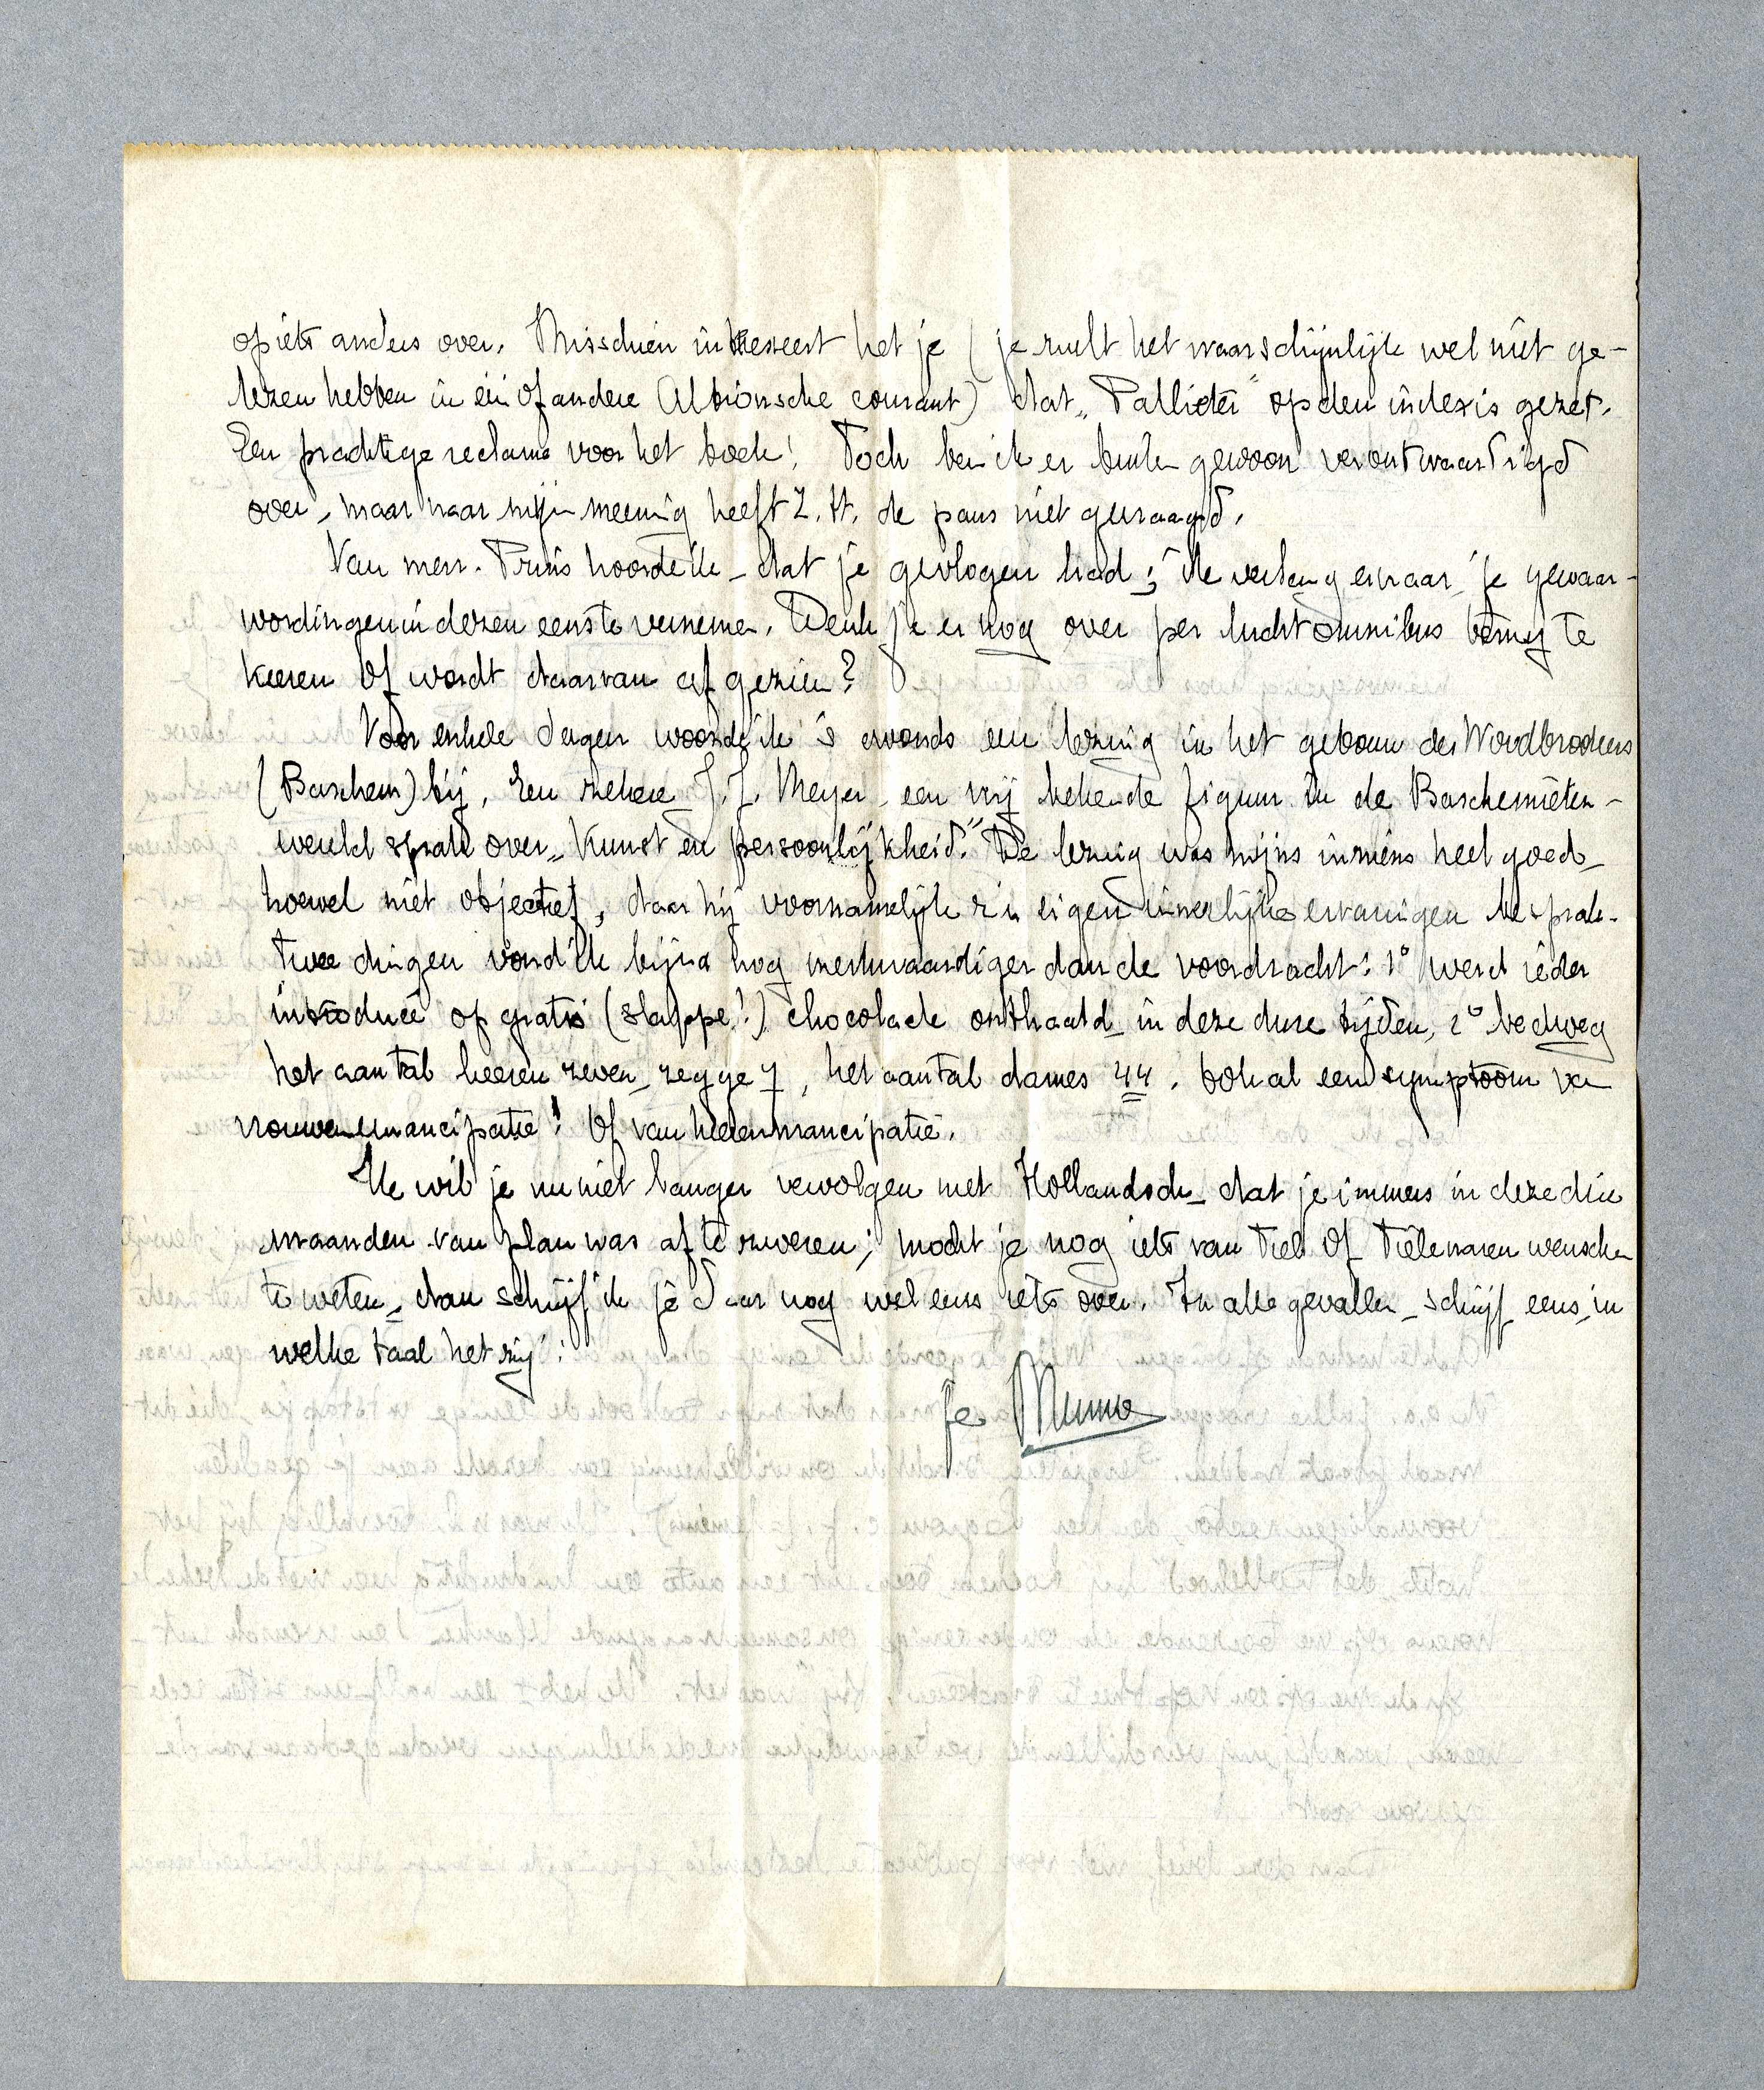 op iets anders over. Misschien interesseert het je (je zult het waarschijnlijk wel niet ge-
lezen hebben in een of andere Albionsche courant) dat „Pallieter" op den index is gezet.
Een prachtige reclame voor het boek! Toch ben ik er buitengewoon verontwaardigd
over, maar naar mijn meening heeft Z. H. de paus niet gevraagd.
Van mevr. Pruis hoorde ik dat je gevlogen had; ik verlang ernaar je gewaar-
wordingen in dezen eens te vernemen. Denk je er nog over per luchtomnibus terug te
keeren of wordt daarvan afgezien?
Voor enkele dagen woonde ik 's avonds een lezing in het gebouw der Woodbrookers
(Barchem) bij. Een zekere J. J. Meyer, een vrij bekende figuur in de Barchemieten-
wereld sprak over „Kunst en persoonlijkheid." De lezing was mijns inziens heel goed,
hoewel niet objectief, daar hij voornamelijk zijn eigen innerlijke ervaringen besprak.
Twee dingen vond ik bijna nog merkwaardiger dan de voordracht: 1° werd ieder
introducé op gratis (slappe!) chocolade onthaald in deze dure tijden, 2° bedroeg
het aantal heeren zeven, zegge 7, het aantal dames 44. Ook al een symptoom van
vrouwenemancipatie! Of van heerenmancipatie.
Ik wil je nu niet langer vervolgen met Hollandsch, dat je immers in deze drie
maanden van plan was af te zweren; mocht je nog iets van Tiel of Tielenaren wenschen
te weten, dan schrijf ik je daar nog wel eens iets over. In alle gevallen, schrijf eens, in
welke taal het zij!
Je Menno